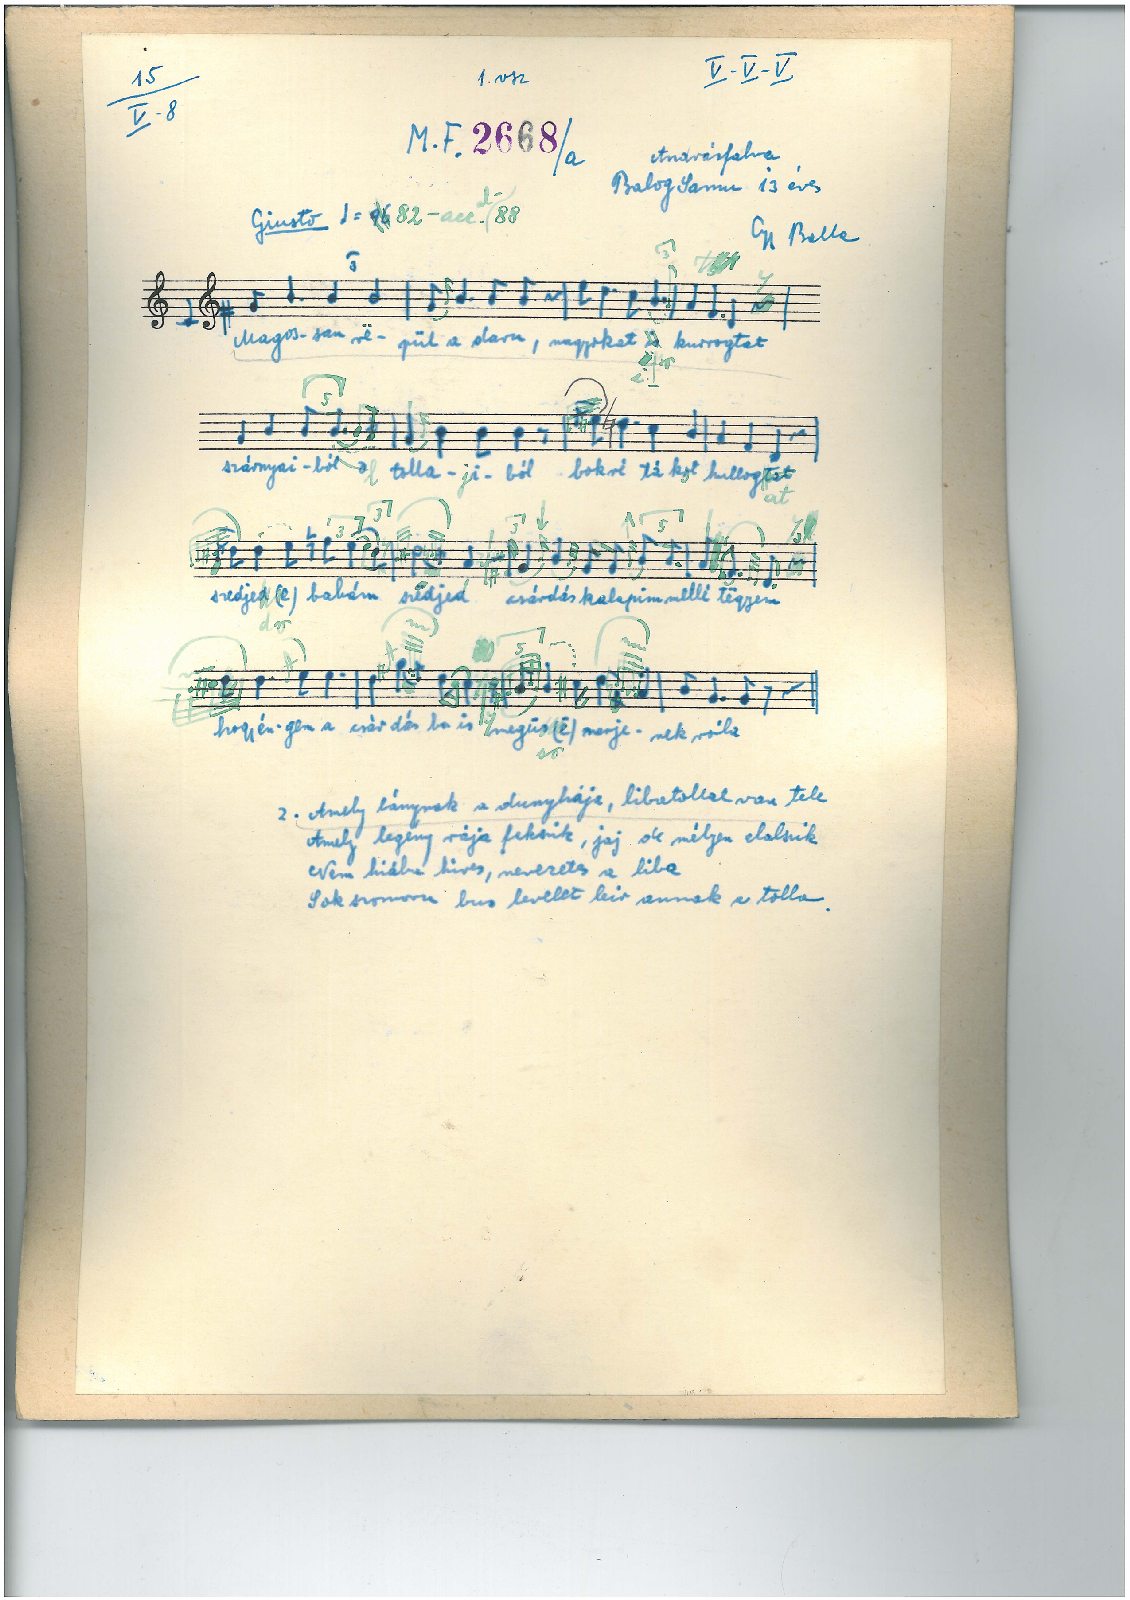 15
V-8
1. vsz
V-V-V
M.F. 2668/a
Andrásfalva
Balog Samu 13 éves
Giusto 82 - acc. 88
Magos-san rë-pül a daru, nagyokat kurrogtat
szárnyai-ból tolla-ji-ból bokré tá kot hullogtat
at
szedjed (ë) babám szëdjed csárdás kalapim mellé tëgyem
hogy én-gem a csár dás ba is megüs(ë) merje-nek róla
2. Amely lánynak a dunyhája, libatollal van tele
Amely legény rája fekszik, jaj de mélyen elalszik
Nem hiába híres, nevezetes a liba
Sok szomoru bus levelet leir annak a tolla.